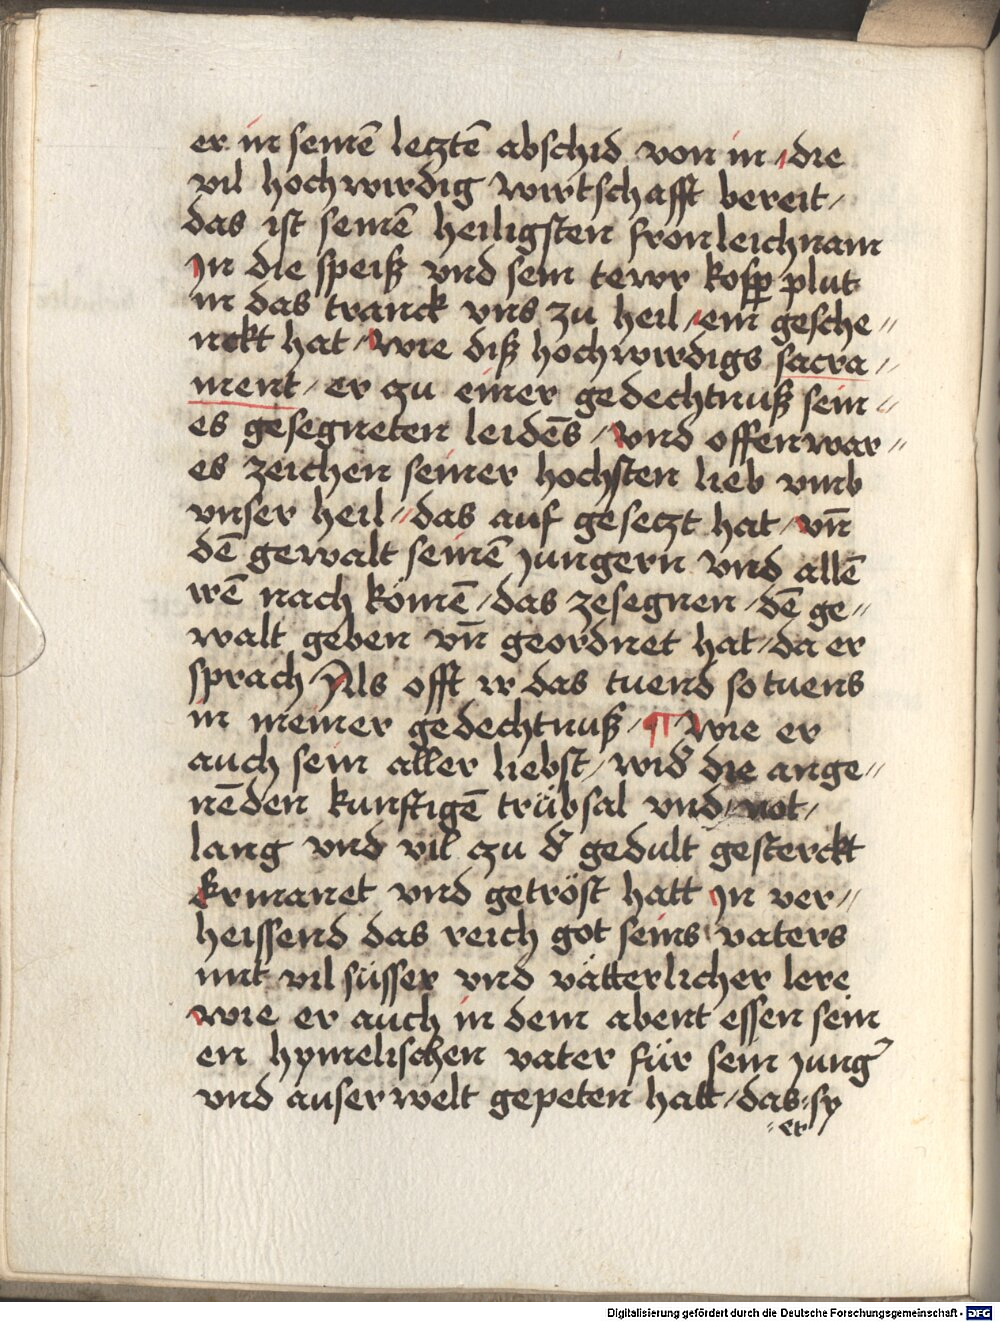 er in seinē lecztē abschid von in / die
vil hochwirdig wirtschafft bereit /
das ist seinē heiligsten fronleichnam
In die speiß vnd sein tewr kosp̄ plut
in das tranck vns zu heil / ein gesche //
nckt hat / Wie diß hochwirdigs sacra //
ment / er zu einer gedechtnuß sein //
es gesegneten leidēs / Vnd offenwar //
es zeichen seiner hochsten lieb vmb
vnser heil // das auf gesetzt hat / vn̄
dē gewalt seinē jungern vnd allē
irē nach kömē / das zesegnen / dē ge //
walt geben vn̄ geordnet hat / da er
sprach / Als offt ir das tuend so tuens
in meiner gedechtnuß / ¶ Wie er
auch sein aller liebst / wid̄ die ange //
nēden kunftigē trübsal vnd not /
lang vnd vil zu d̄ gedult gesterckt
Ermanet vnd getröst hatt In ver //
heissend das reich got seins vaters
mit vil süsser vnd vätterlicher lere
Wie er auch in dem abent essen sein
en hymelischen vater für sein jung̛
vnd auserwelt gepeten hatt / das sy
er
Digitalisierung gefördert durch die Deutsche Forschungsgemeinschaft - DFG